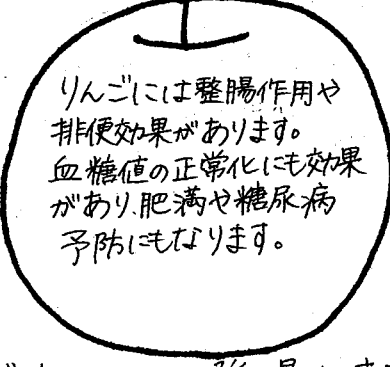 りんごには整腸作用や
排便効果があります。
血糖値の正常化にも効果
があり、肥満や糖尿病
予防にもなります。